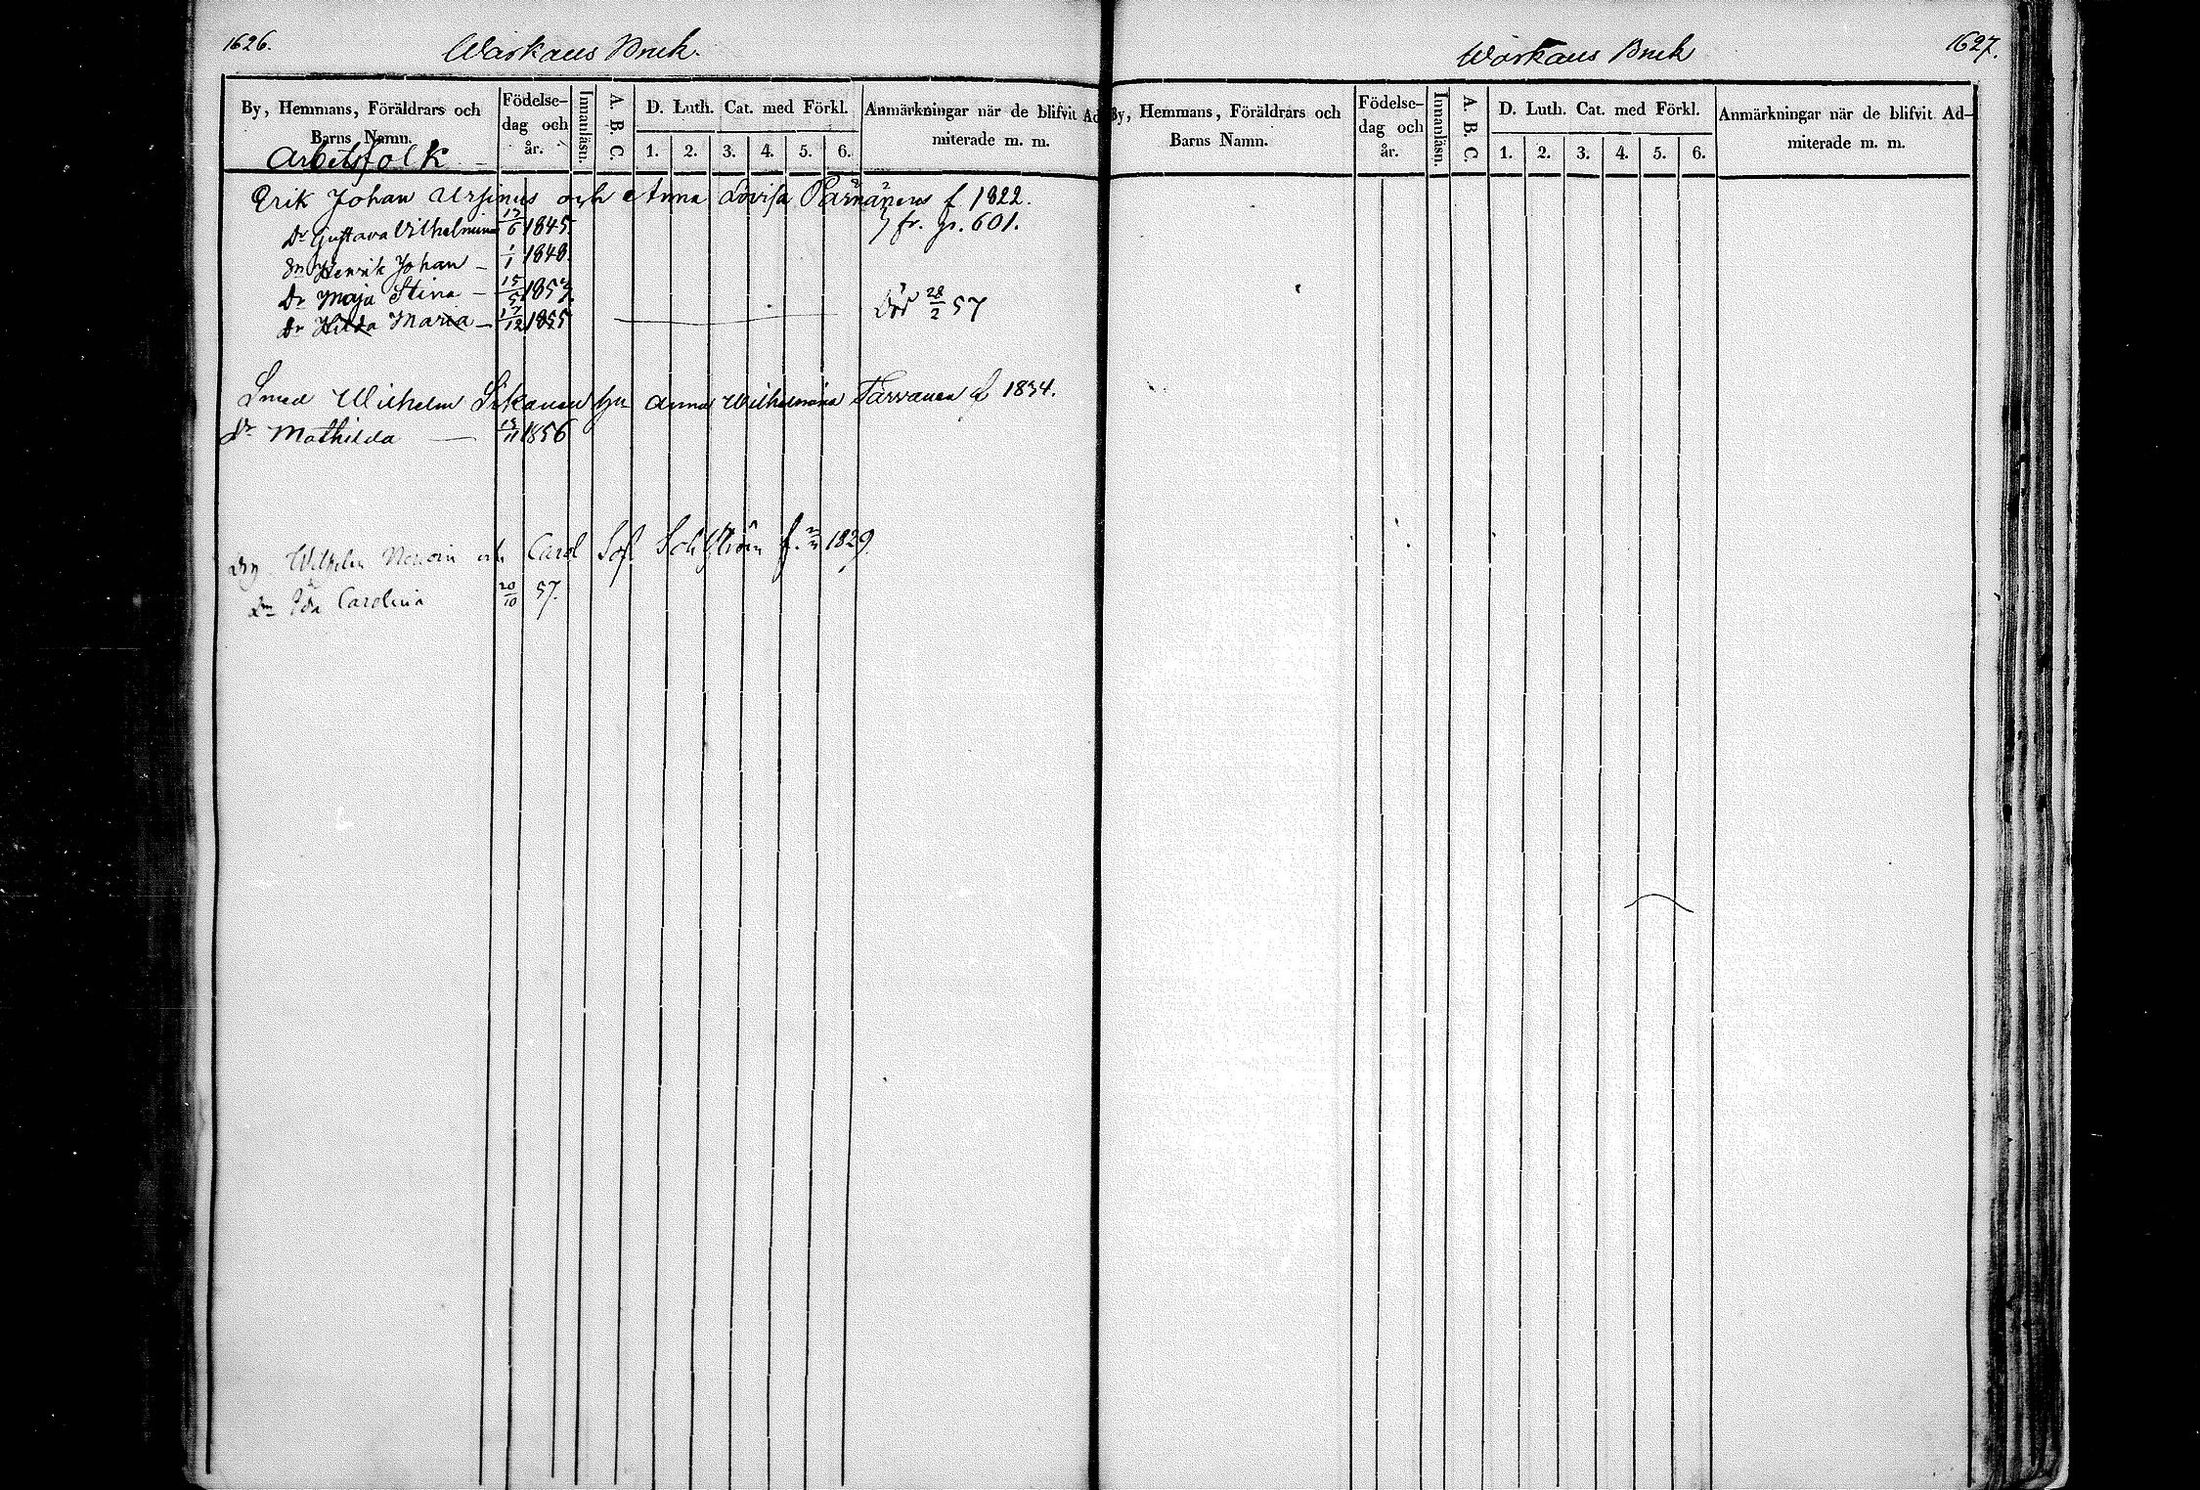 1626.
Warkaus Bruk.
By, Hemmans, Föräldrars och Barns Namn.
Födelse-dag och år.
Innanläsn.
A. B. C.
D. Luth. Cat. med Förkl.
1. 2. 3. 4. 5. 6.
Anmärkningar när de blifvit Ad
miterade m. m.
Arbetsfolk
Erik Johan Ursinus och Anna Lovisa Pärnänens f 1822.
Dr Gustava Vilhelmina 6 1845 fr. p. 601.
Sn Henrik Johan 1/1 1848
Dr Maja Stina 15/5 1853
Dr Hilda Maria 17/12 1855 Död 28/2 57
Smed Wilhelm hu Anna Wilhelmina Tarvanen f 1834.
Dr Mathilda 13/11 1856
Wilhelm och Carol Sof. f. 1829
Dr Ida Carolina 20/10 57.
Warkaus Bruk
1627.
By, Hemmans, Föräldrars och
Barns Namn.
Födelse-dag och år.
Innanläsn.
A. B. C.
D. Luth. Cat. med Förkl.
1. 2. 3. 4. 5. 6.
Anmärkningar när de blifvit Ad-
miterade m. m.